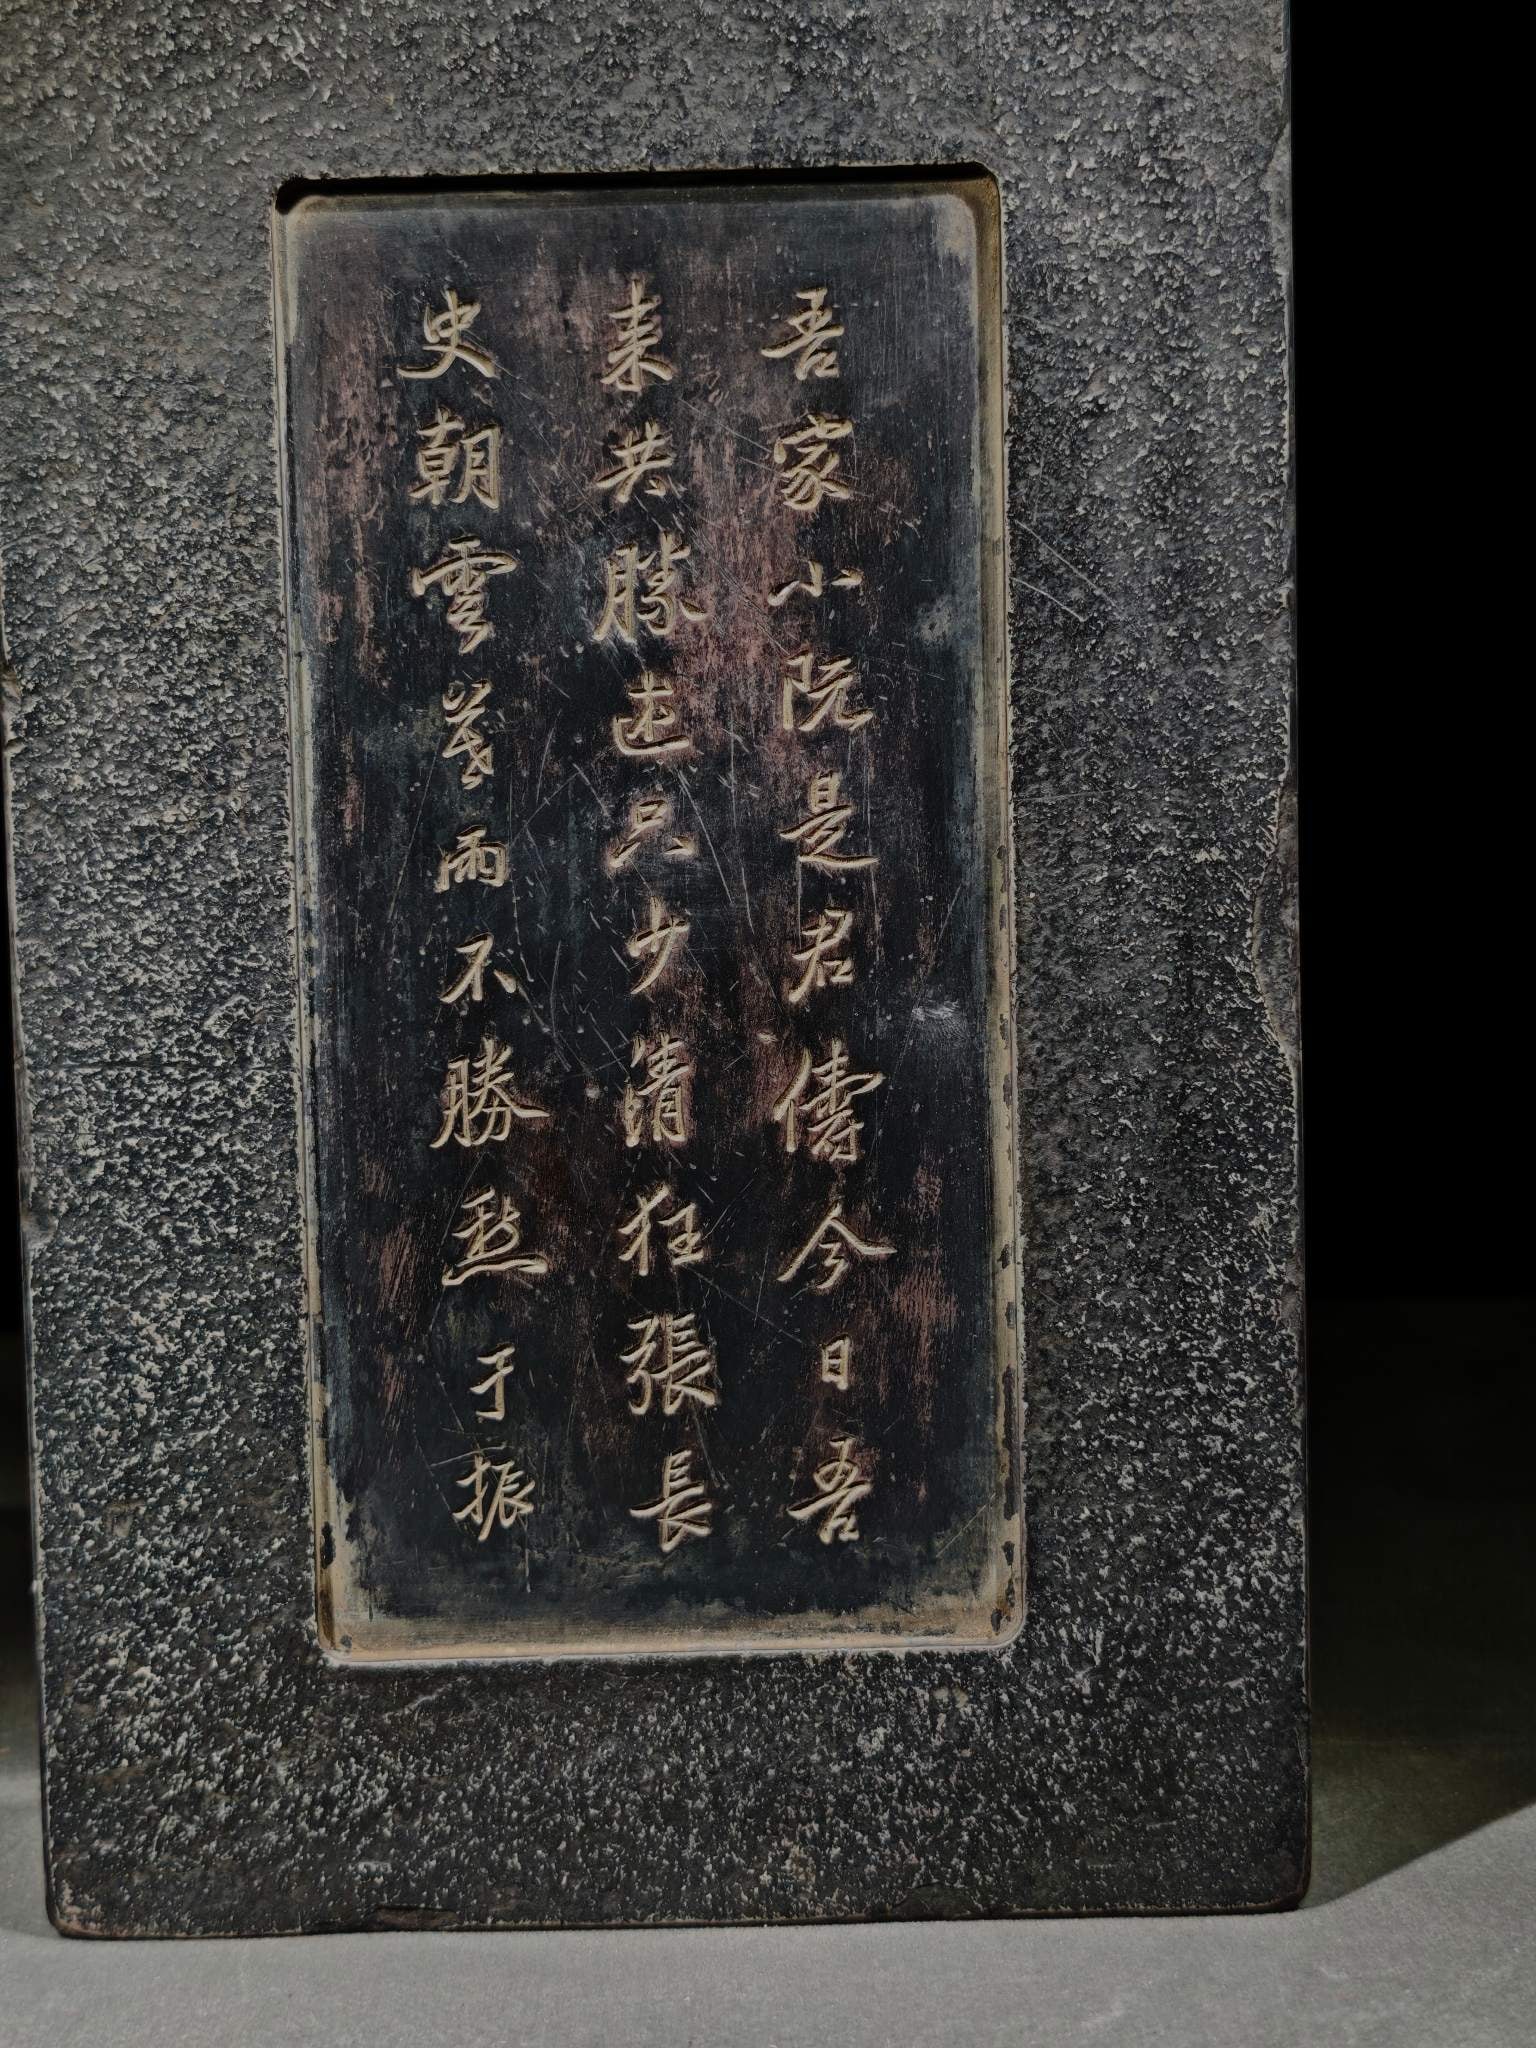 吾家小阮是君儔今日吾
来共勝遊只少清狂張長
史朝雲暮雨不勝愁 于振